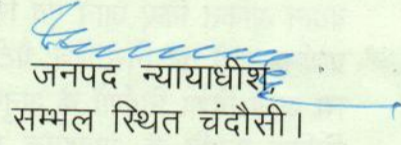 जनपद न्यायाधीश,
सम्भल स्थित चंदौसी।